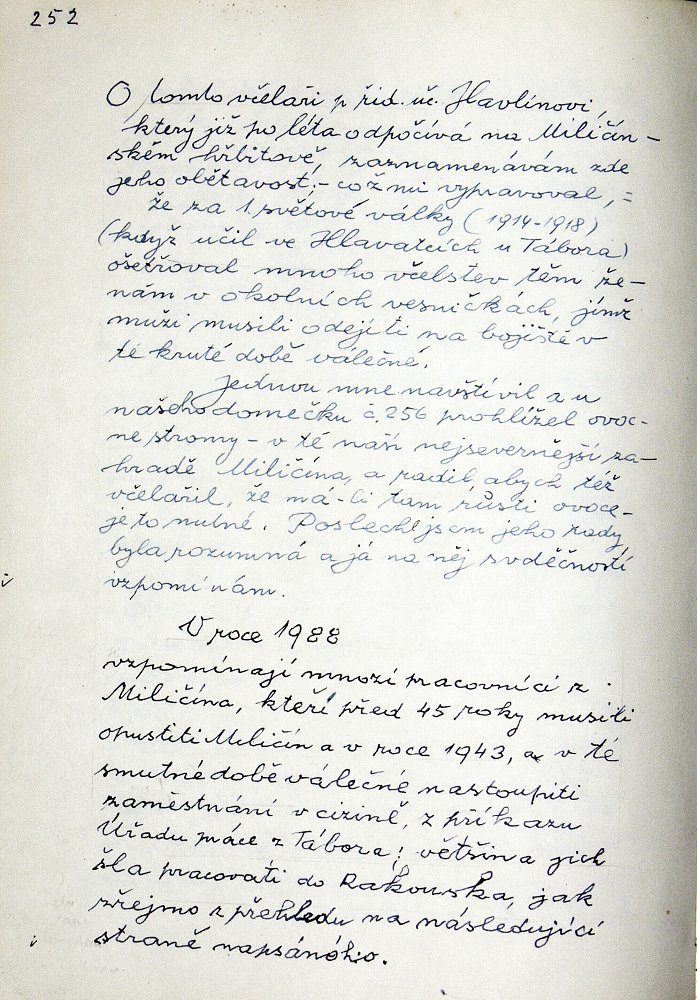 252
O tomto včelaři p. řid. uč. Havlínovi,
který již po léta odpočívá na Miličín-
ském hřbitově, zaznamenávám zde
jeho obětavost, - což mi vypravoval, =
že za 1. světové války (1914-1918)
(když učil ve Hlavatcích u Tábora)
ošetřoval mnoho včelstev těm že-
nám v okolních vesničkách, jimž
muži musili odejíti na bojiště v
té kruté době válečné.
Jednou mne navštívil a u
našeho domečku č. 256 prohlížel ovoc-
né stromy - v té naší nejsevernější za-
hradě Miličína, a radil, abych též
včelařil, že má-li tam růsti ovoce-
je to nutné. Poslechl jsem jeho rady,
byla rozumná a já na něj s vděčností
vzpomínám.
V roce 1988
vzpomínají mnozí pracovníci z
Miličína, kteří před 45 roky musili
opustiti Miličín a v roce 1943, a v té
smutné době válečné nastoupiti
zaměstnání v cizině, z příkazu
Úřadu práce z Tábora; většina jich
šla pracovati do Rakouska, jak
zřejmo z přehledu na následující
straně napsaného.